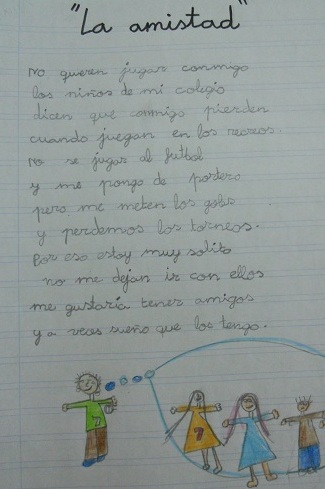 "La amistad"
No quieren jugar conmigo
los niños de mi colegio
dicen que conmigo pierden
cuando juegan en los recreos.
No se jugar al futbol
y me pongo de portero
pero me meten los goles
y perdemos los torneos.
Por eso estoy muy solito
no me dejan ir con ellos
me gustaría tener amigos
y a veces sueño que los tengo.
7
7